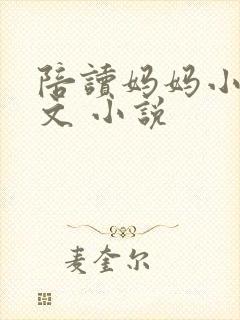 陪讀妈妈小
文 小說
麦奎尔